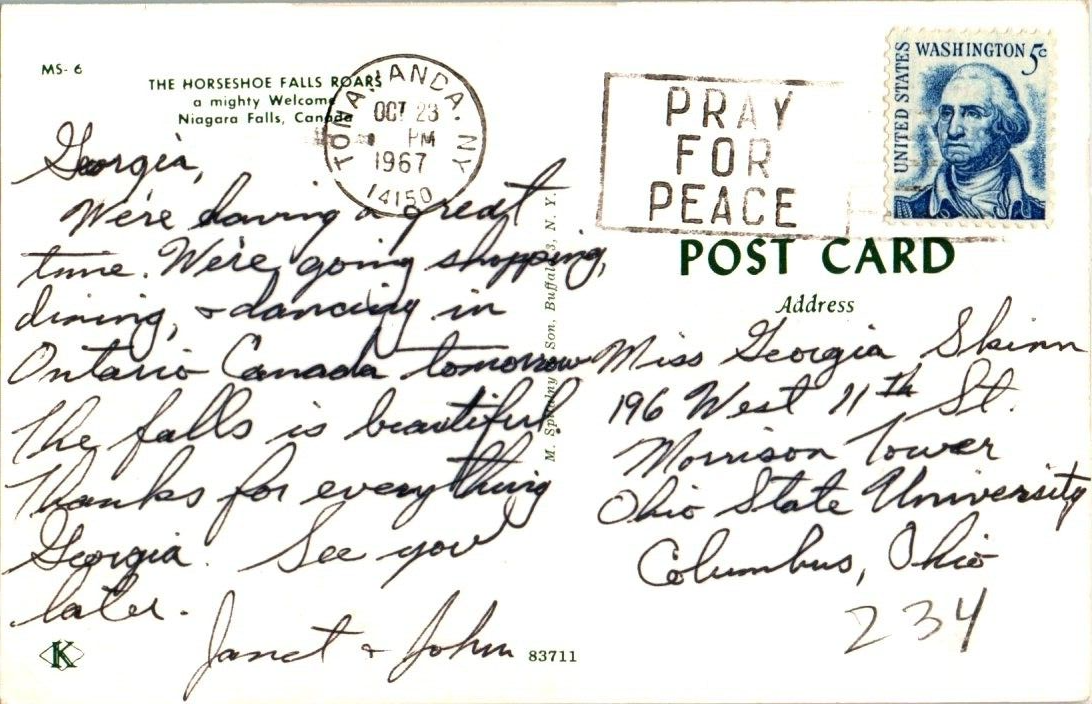 MS- 6
THE HORSESHOE FALLS ROARS
a mighty Welcome
Niagara Falls, Canada
TONAWANDA. NY
OCT 23
PM
1967
14150
PRAY
FOR
PEACE
UNITED STATES
WASHINGTON 5c
POST CARD
Address
Georgia,
We're having a great
time. We're going shopping,
dining, & dancing in
Ontario Canada tomorrow
The falls is beautiful.
Thanks for everything
Georgia. See you
later.
Janet & John
M. Son, Buffalo 3, N. Y.
Miss Georgia Skinn
196 West 11th St.
Morrison Tower
Ohio State University
Columbus, Ohio
234
K
83711